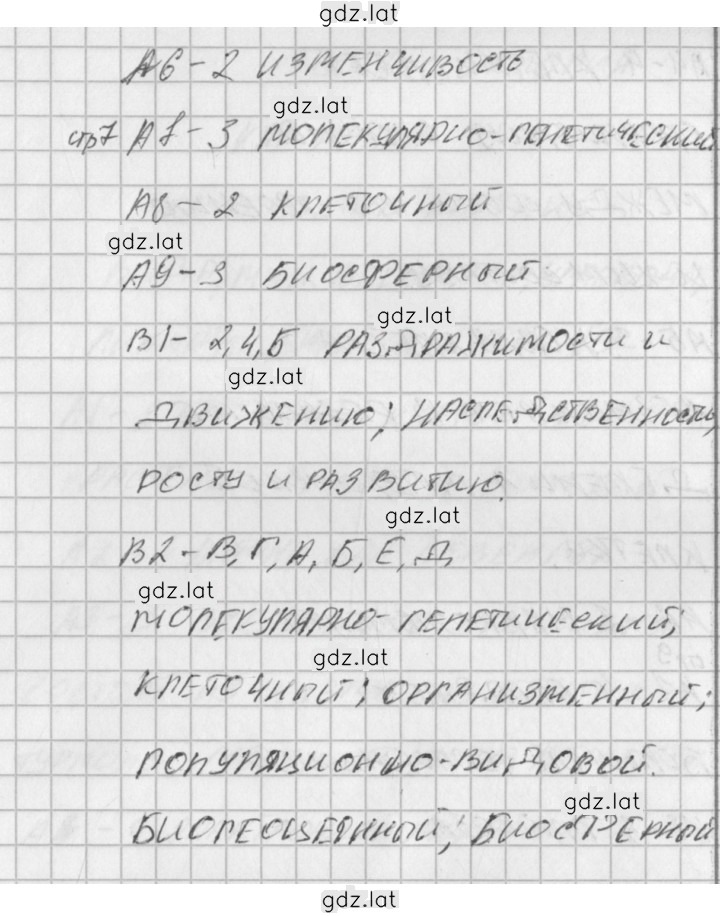 gdz.lat
А6-2 ИЗМЕНЧИВОСТЬ
gdz.lat
стр7 А7-3 МОЛЕКУЛЯРНО-ГЕНЕТИЧЕСКИЙ
А8-2 КЛЕТОЧНЫЙ
gdz.lat
А9-3 БИОСФЕРНЫЙ
gdz.lat
В1- 2,4,Б РАЗДРАЖИМОСТИ И
gdz.lat
ДВИЖЕНИЮ; НАСЛЕДСТВЕННОСТЬ,
РОСТУ И РАЗВИТИЮ.
gdz.lat
В2-В,Г,А,Б,Е,Д
gdz.lat
МОЛЕКУЛЯРНО-ГЕНЕТИЧЕСКИЙ;
gdz.lat
КЛЕТОЧНЫЙ; ОРГАНИЗМЕННЫЙ;
ПОПУЛЯЦИОННО-ВИДОВОЙ.
gdz.lat
БИОГЕОЦЕННЫЙ; БИОСФЕРНЫЙ
gdz.lat